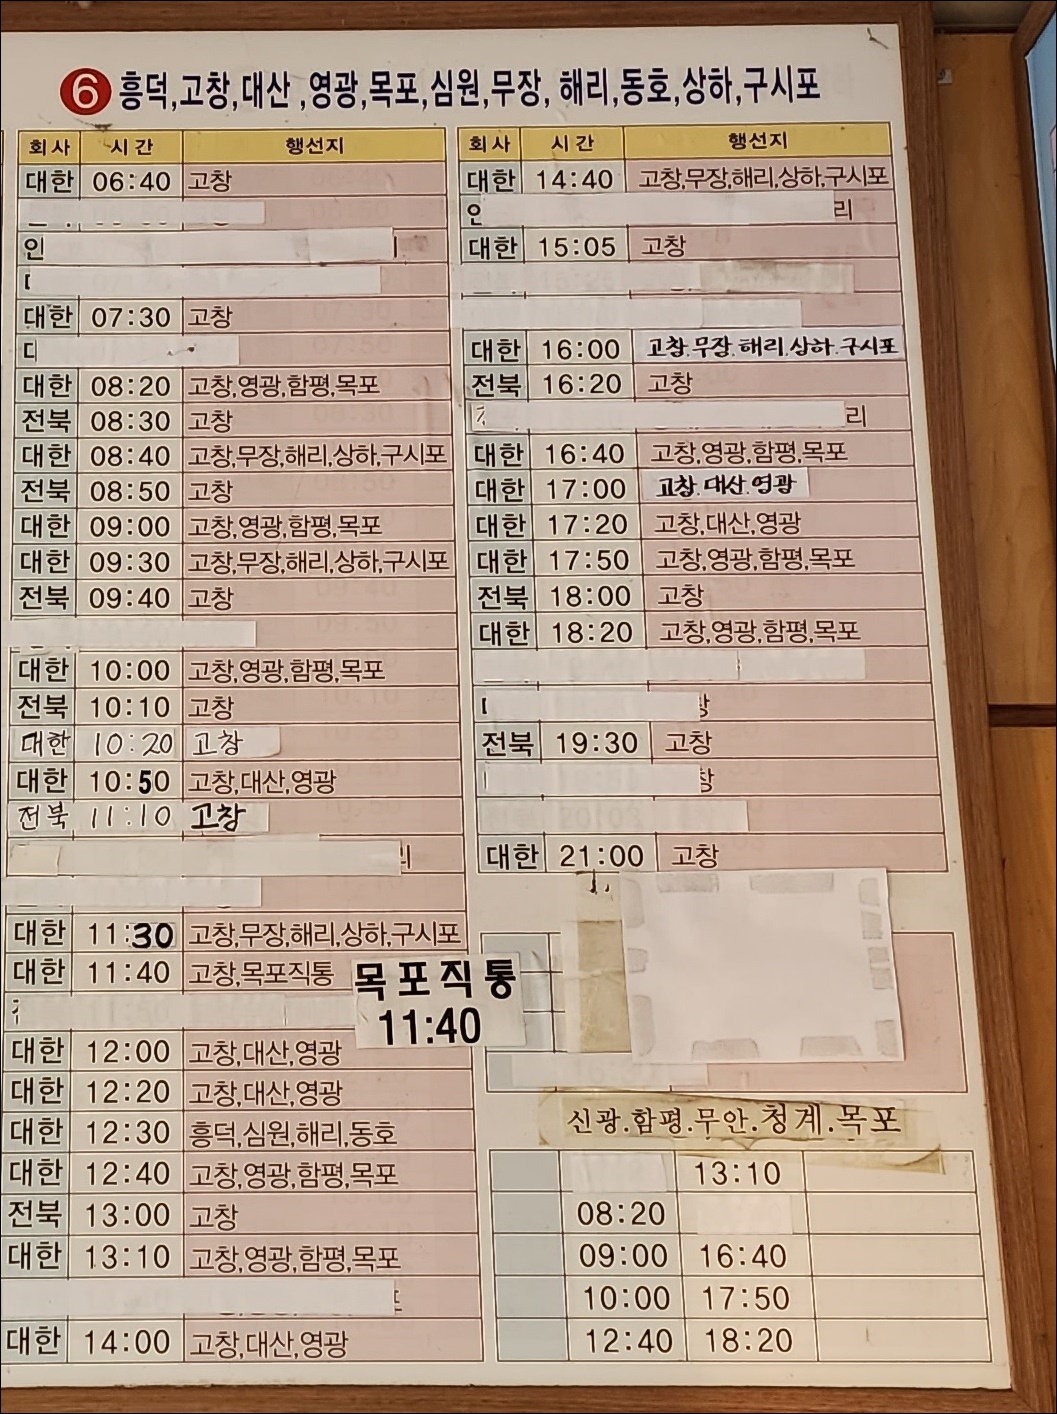 6 흥덕,고창,대산,영광,목포,심원,무장,해리,동호,상하,구시포
회사 시간 행선지
대한 06:40 고창
인
대한 07:30 고창
대한 08:20 고창,영광,함평,목포
전북 08:30 고창
대한 08:40 고창,무장,해리,상하,구시포
전북 08:50 고창
대한 09:00 고창,영광,함평,목포
대한 09:30 고창,무장,해리,상하,구시포
전북 09:40 고창
대한 10:00 고창,영광,함평,목포
전북 10:10 고창
대한 10:20 고창
대한 10:50 고창,대산,영광
전북 11:10 고창
리
대한 11:30 고창,무장,해리,상하,구시포
대한 11:40 고창,목포직통
목포직통
11:40
대한 12:00 고창,대산,영광
대한 12:20 고창,대산,영광
대한 12:30 흥덕,심원,해리,동호
대한 12:40 고창,영광,함평,목포
전북 13:00 고창
대한 13:10 고창,영광,함평,목포
대한 14:00 고창,대산,영광
회사 시간 행선지
대한 14:40 고창,무장,해리,상하,구시포
인 리
대한 15:05 고창
대한 16:00 고창.무장.해리.상하.구시포
전북 16:20 고창
리
대한 16:40 고창,영광,함평,목포
대한 17:00 고창.대산.영광
대한 17:20 고창,대산,영광
대한 17:50 고창,영광,함평,목포
전북 18:00 고창
대한 18:20 고창,영광,함평,목포
창
전북 19:30 고창
창
대한 21:00 고창
신광.함평.무안.청계.목포
13:10
08:20
09:00 16:40
10:00 17:50
12:40 18:20